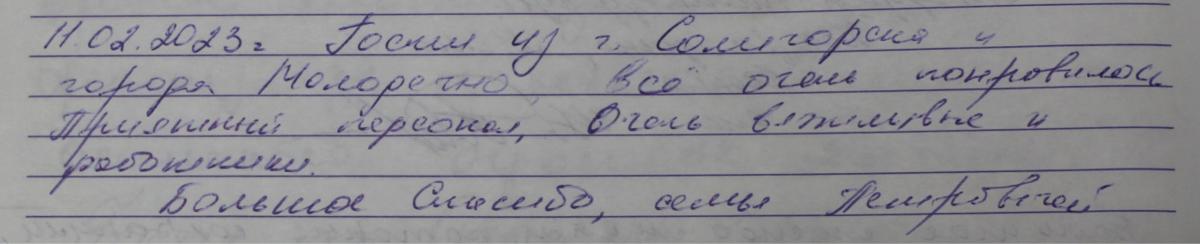 11.02.2023г. Гости из г. Солигорска и
города Молодечно. Всё очень понравилось
Приятный персонал, Очень вежливые и
работники.
Большое Спасибо, семья Петровичей